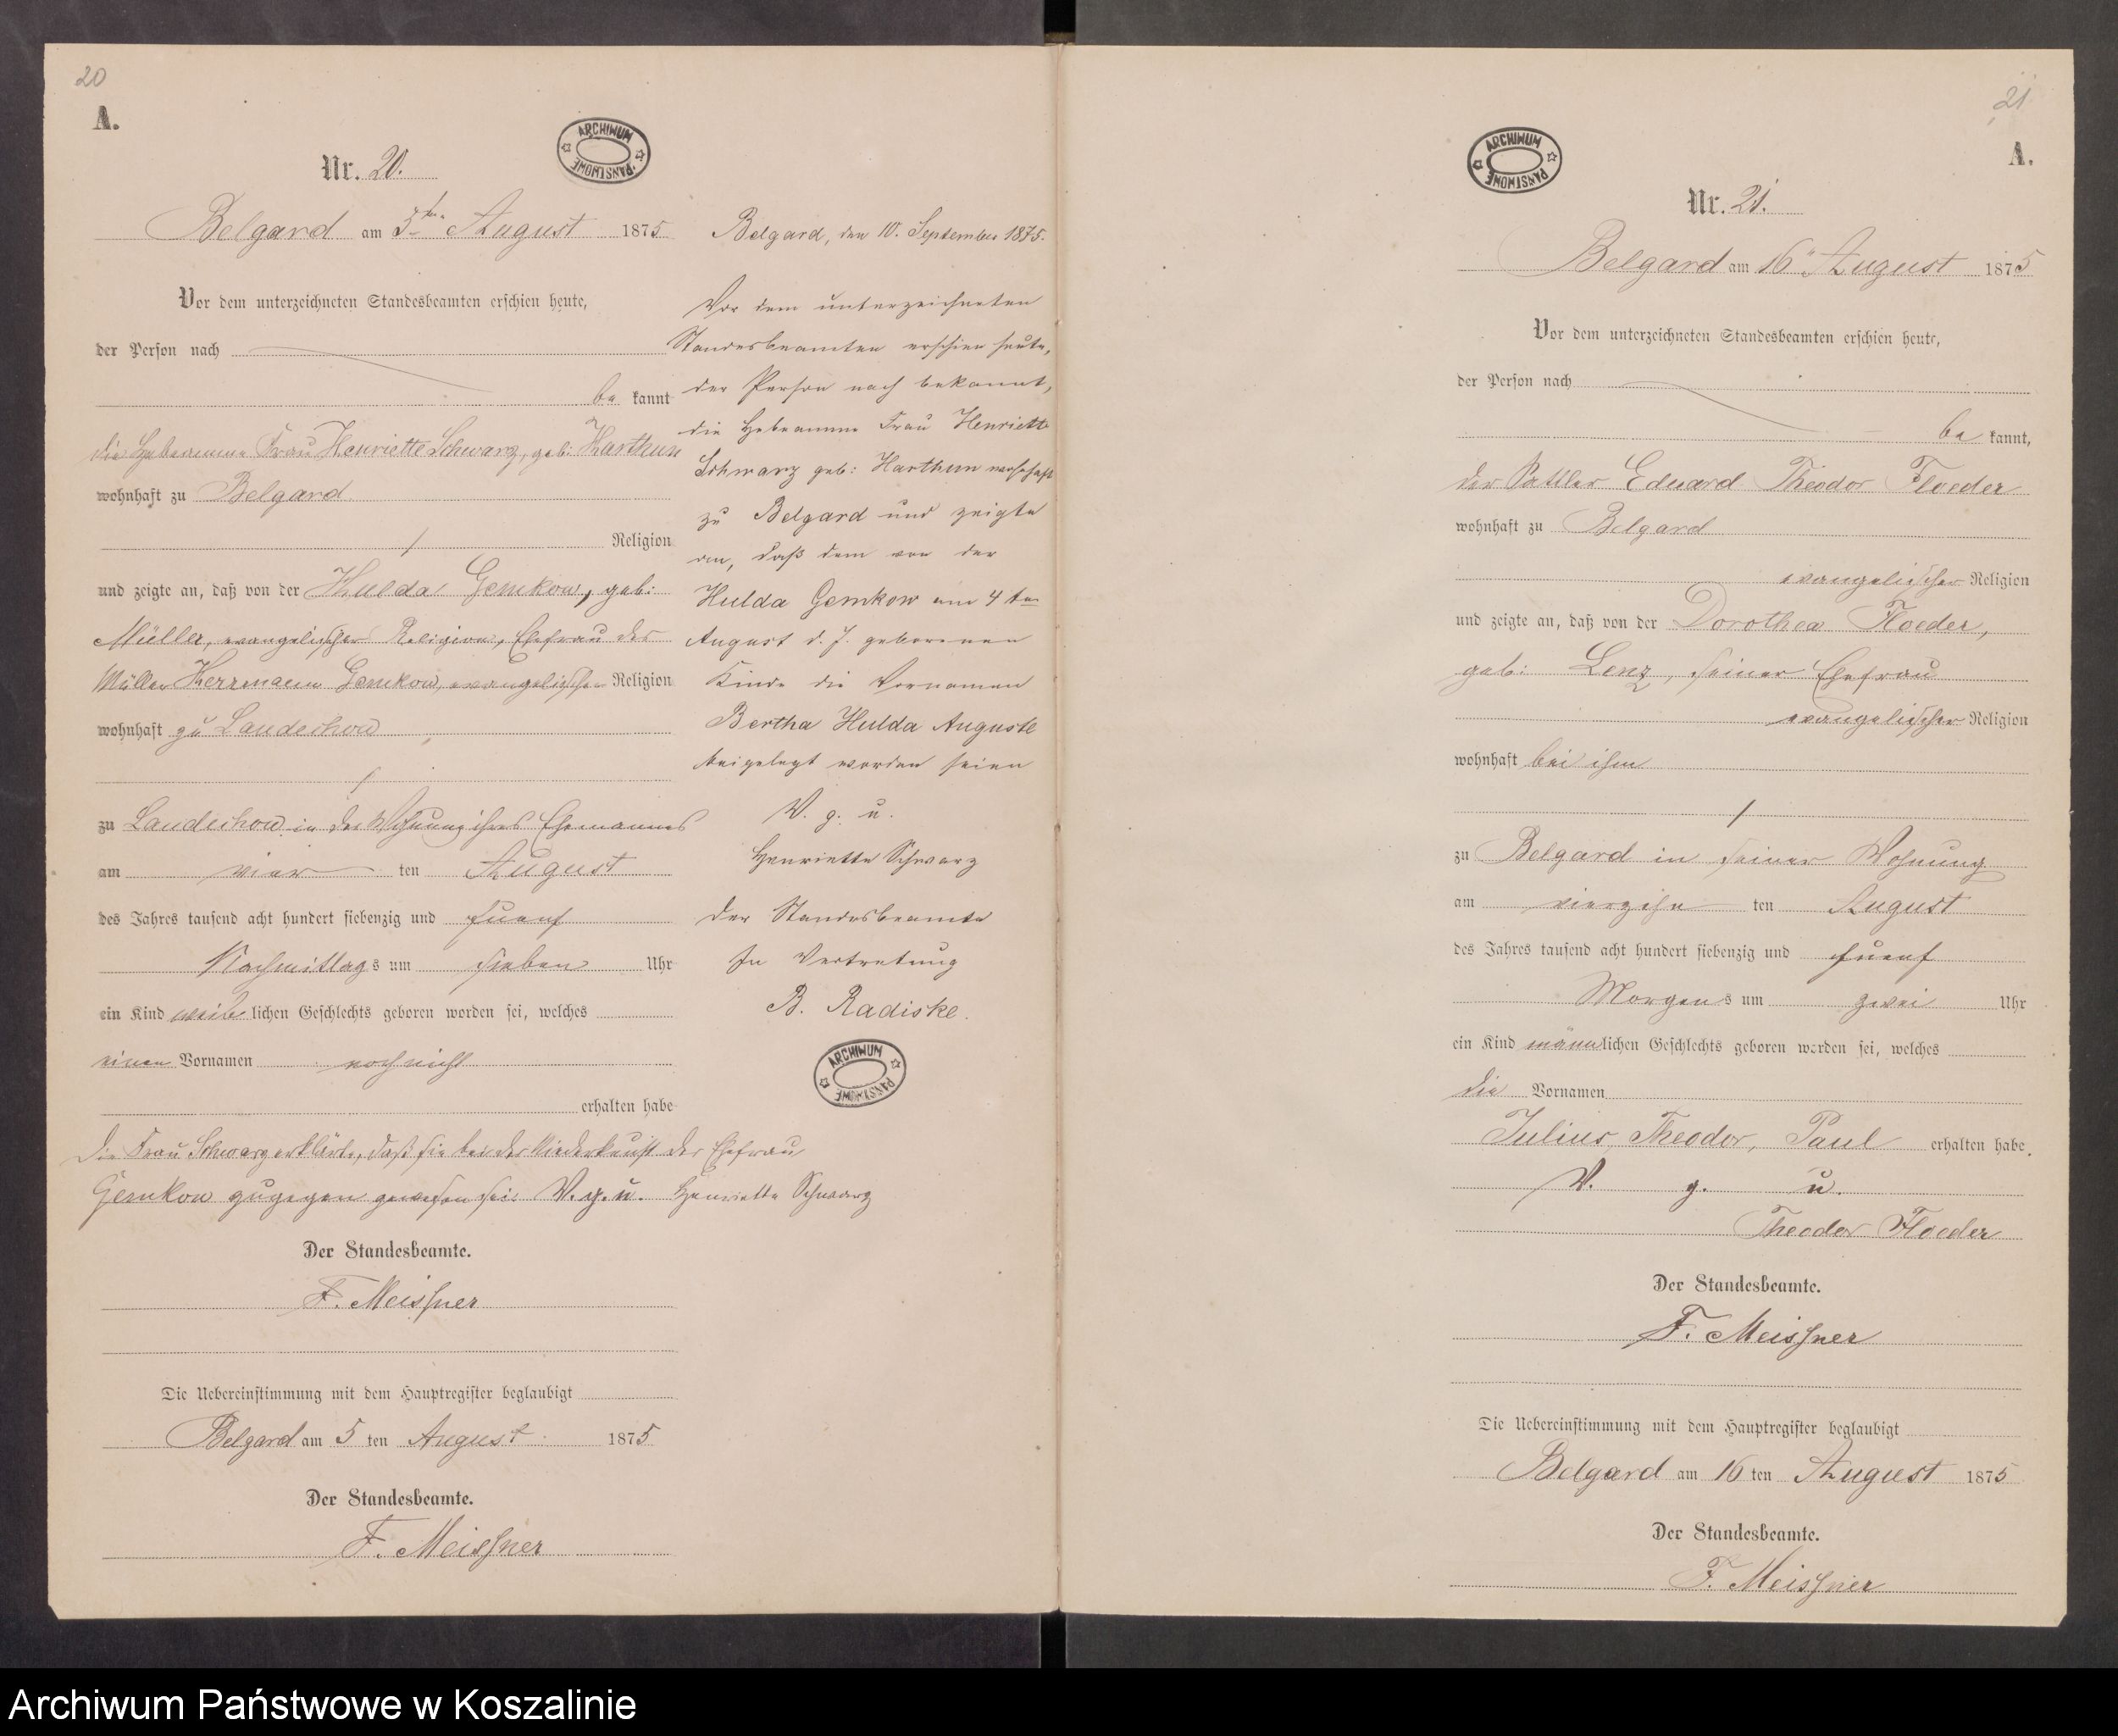 20
A.
ARCHIWUM PAŃSTWOWE
Nr. 20.
Belgard am 5ten August 1875
Vor dem unterzeichneten Standesbeamten erschien heute,
der Person nach
be kannt
die Hebeamme Frau Henriette Schwarz, geb: Harthun
wohnhaft zu Belgard
Religion
und zeigte an, daß von der Hulda Gemkow, geb:
Müller, evangelischer Religion, Ehefrau des
Müller Herrmann Gemkow, evangelischer Religion
wohnhaft zu Landechow
zu Landechow in der Wohnung ihres Ehemannes
am vier ten August
des Jahres tausend acht hundert siebenzig und fuenf
Nachmittags um sieben Uhr
ein Kind weiblichen Geschlechts geboren worden sei, welches
einen Vornamen noch nicht
erhalten habe
Die Frau Schwarz erklärte, daß sie bei der Niederkunft der Ehefrau
Gemkow zugegen gewesen sei. V. g. u. Henriette Schwarz
Der Standesbeamte.
F. Meissner
Die Uebereinstimmung mit dem Hauptregister beglaubigt
Belgard am 5 ten August 1875
Der Standesbeamte.
F. Meissner
Belgard, den 10. September 1875.
Vor dem unterzeichneten
Standesbeamten erschien heute,
der Person nach bekannt,
die Hebeamme Frau Henriette
Schwarz geb: Harthun
zu Belgard und zeigte
an, daß dem von der
Hulda Gemkow am 4 ten
August d. J. geborenen
Kinde die Vornamen
Bertha Hulda Auguste
beigelegt worden seien
V. g. u.
Henriette Schwarz
Der Standesbeamte
In Vertretung
B. Radiske.
ARCHIWUM PAŃSTWOWE
21
A.
ARCHIWUM PAŃSTWOWE
Nr. 21.
Belgard am 16 August 1875
Vor dem unterzeichneten Standesbeamten erschien heute,
der Person nach
be kannt,
der Sattler Eduard Theodor Floeder
wohnhaft zu Belgard
evangelischer Religion
und zeigte an, daß von der Dorothea Floeder,
geb: Lenz, seiner Ehefrau
evangelischer Religion
wohnhaft bei ihm
zu Belgard in seiner Wohnung
am vierzehn ten August
des Jahres tausend acht hundert siebenzig und fuenf
Morgens um zwei Uhr
ein Kind männlichen Geschlechts geboren worden sei, welches
die Vornamen
Julius, Theodor, Paul erhalten habe.
V. g. u.
Theodor Floeder
Der Standesbeamte.
F. Meissner
Die Uebereinstimmung mit dem Hauptregister beglaubigt
Belgard am 16 ten August 1875
Der Standesbeamte.
F. Meissner
Archiwum Państwowe w Koszalinie